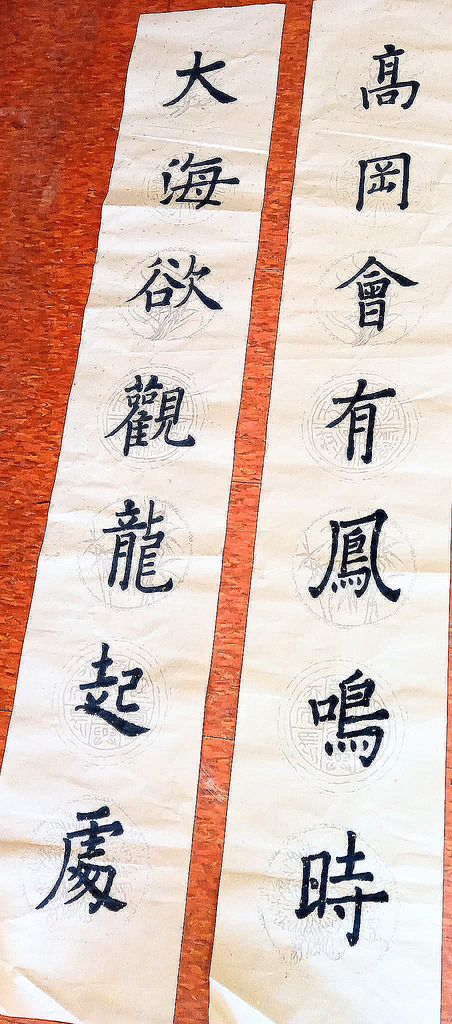 高岡會有鳳鳴時
大海欲觀龍起處